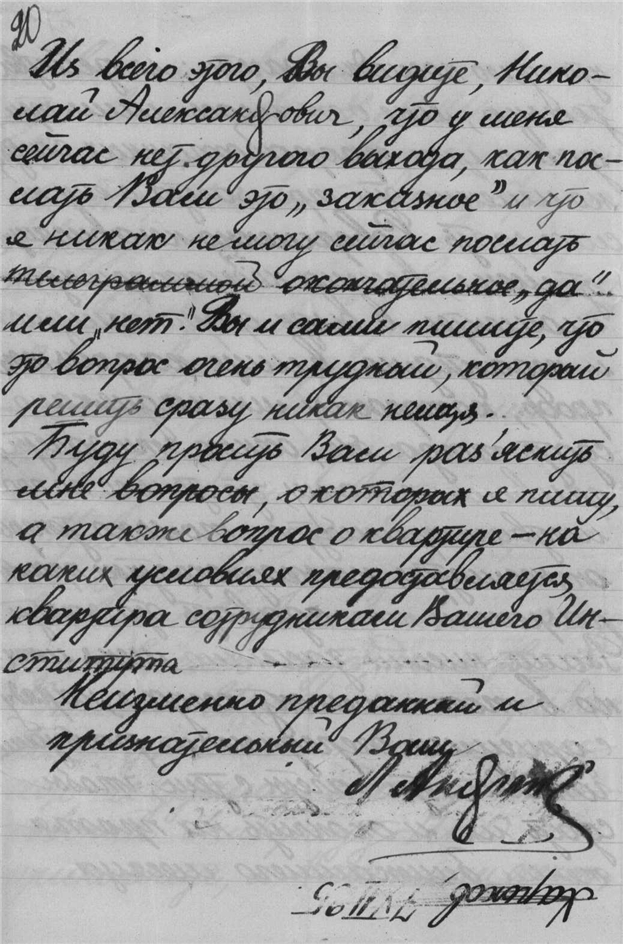 20
Из всего этого, Вы видите, Нико-
лай Александрович, что у меня
сейчас нет другого выхода, как пос-
лать Вам это „заказное" и что
я никак не могу сейчас послать
телеграммой окончательное „да"
или „нет". Вы и сами пишите, что
это вопрос очень трудный, который
решить сразу никак нельзя.
Буду просить Вас раз'яснить
мне вопросы, о которых я пишу,
а также вопрос о квартире – на
каких условиях предоставляется
квартира сотрудникам Вашего Ин-
ститута
Неизменно преданный и
признательный Вам
Харьков,